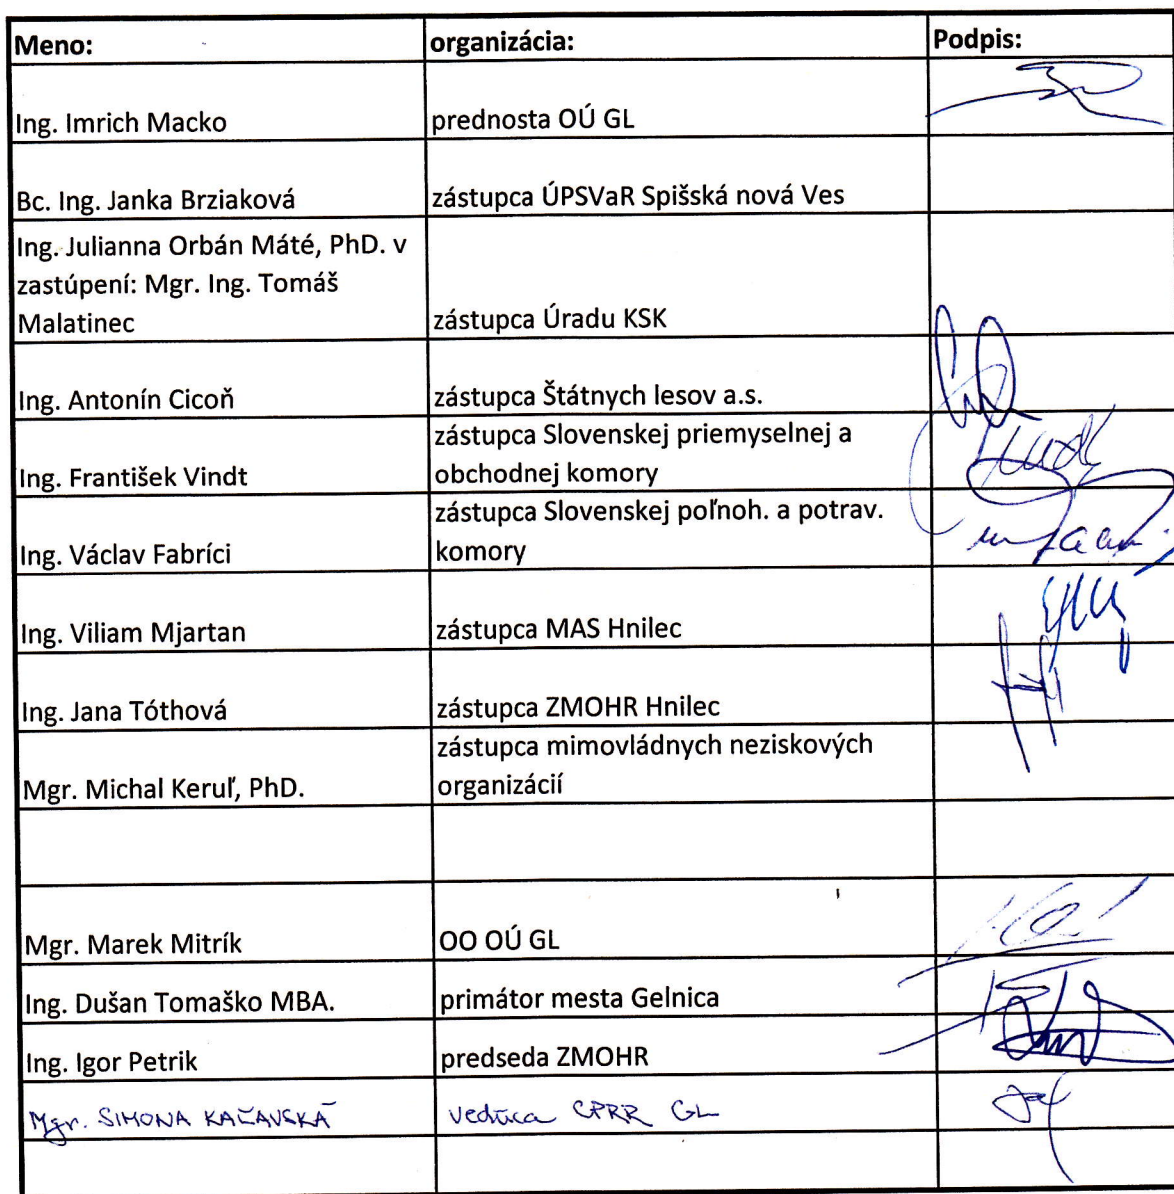 Meno: organizácia: Podpis:
Ing. Imrich Macko prednosta OÚ GL
Bc. Ing. Janka Brziaková zástupca ÚPSVaR Spišská nová Ves
Ing. Julianna Orbán Máté, PhD. v
zastúpení: Mgr. Ing. Tomáš
Malatinec zástupca Úradu KSK
Ing. Antonín Cicoň zástupca Štátnych lesov a.s.
zástupca Slovenskej priemyselnej a
Ing. František Vindt obchodnej komory
zástupca Slovenskej poľnoh. a potrav.
Ing. Václav Fabríci komory
Ing. Viliam Mjartan zástupca MAS Hnilec
Ing. Jana Tóthová zástupca ZMOHR Hnilec
zástupca mimovládnych neziskových
Mgr. Michal Keruľ, PhD. organizácií
Mgr. Marek Mitrík OO OÚ GL
Ing. Dušan Tomaško MBA. primátor mesta Gelnica
Ing. Igor Petrik predseda ZMOHR
Mgr. SIMONA KAČAVSKÁ vedúca CPRR GL